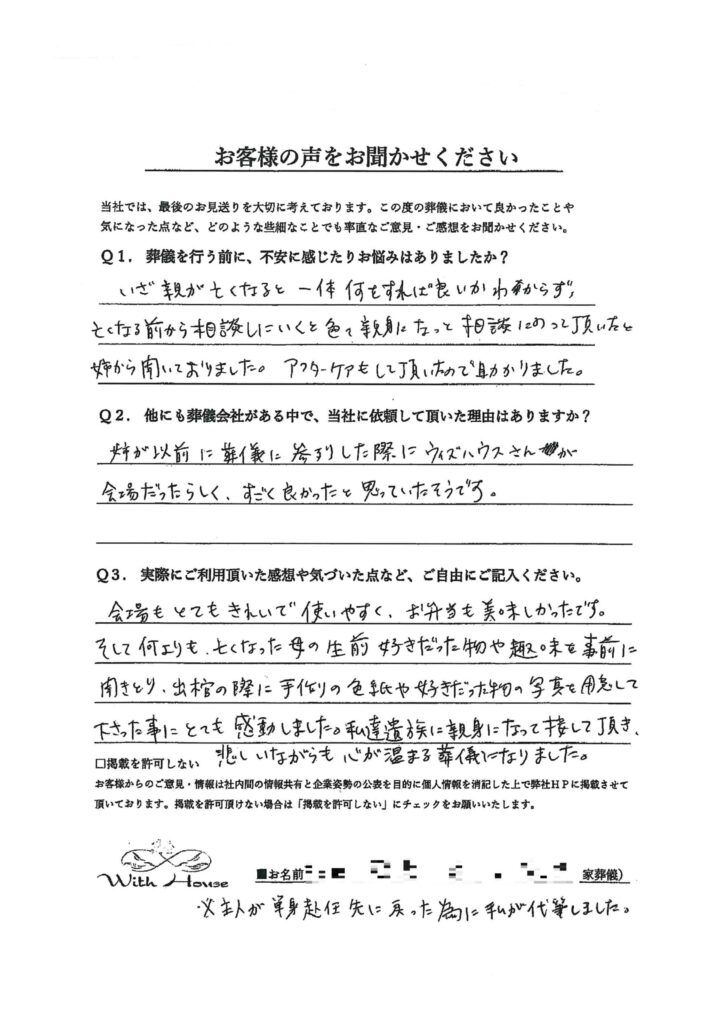 お客様の声をお聞かせください
当社では、最後のお見送りを大切に考えております。この度の葬儀において良かったことや
気になった点など、どのような些細なことでも率直なご意見・ご感想をお聞かせください。
Q1．葬儀を行う前に、不安に感じたりお悩みはありましたか？
いざ親が亡くなると一体何をすれば良いかわからず、
亡くなる前から相談しにいくと色々親身になって相談にのって頂いたと
姉から聞いておりました。アフターケアもして頂いたので助かりました。
Q2．他にも葬儀会社がある中で、当社に依頼して頂いた理由はありますか？
姉が以前に葬儀に参列した際にウィズハウスさんが
会場だったらしく、すごく良かったと思っていたそうです。
Q3．実際にご利用頂いた感想や気づいた点など、ご自由にご記入ください。
会場もとてもきれいで使いやすく、お弁当も美味しかったです。
そして何よりも、亡くなった母の生前好きだった物や趣味を事前に
聞きとり、出棺の際に手作りの色紙や好きだった物の写真を用意して
下さった事にとても感動しました。私達遺族に親身になって接して頂き、
悲しいながらも心が温まる葬儀になりました。
□掲載を許可しない
お客様からのご意見・情報は社内間の情報共有と企業姿勢の公表を目的に個人情報を消記した上で弊社HPに掲載させて
頂いております。掲載を許可頂けない場合は「掲載を許可しない」にチェックをお願いいたします。
With House
■お名前 家葬儀）
※主人が単身赴任先に戻った為に私が代筆しました。